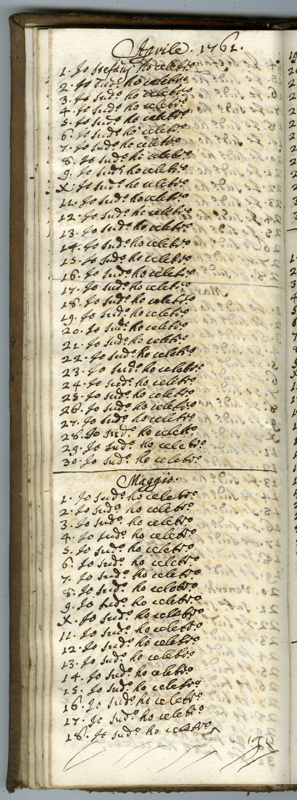 Aprile. 1761.
1. Io Stefani ho celebro
2. Io sudo ho celebro
3. Io sudo ho celebro
4. Io sudo ho celebro
5. Io sudo ho celebro
6. Io sudo ho celebro
7. Io sudo ho celebro
8. Io sudo ho celebro
9. Io sudo ho celebro
X. Io sudo ho celebro
11. Io sudo ho celebro
12. Io sudo ho celebro
13. Io sudo ho celebro
14. Io sudo ho celebro
15. Io sudo ho celebro
16. Io sudo ho celebro
17. Io sudo ho celebro
18. Io sudo ho celebro
19. Io sudo ho celebro
20. Io sudo ho celebro
21. Io sudo ho celebro
22. Io sudo ho celebro
23. Io sudo ho celebro
24. Io sudo ho celebro
25. Io sudo ho celebro
26. Io sudo ho celebro
27. Io sudo ho celebro
28. Io sudo ho celebro
29. Io sudo ho celebro
30. Io sudo ho celebro
Maggio.
1. Io sudo ho celebro
2. Io sudo ho celebro
3. Io sudo ho celebro
4. Io sudo ho celebro
5. Io sudo ho celebro
6. Io sudo ho celebro
7. Io sudo ho celebro
8. Io sudo ho celebro
9. Io sudo ho celebro
X. Io sudo ho celebro
11. Io sudo ho celebro
12. Io sudo ho celebro
13. Io sudo ho celebro
14. Io sudo ho celebro
15. Io sudo ho celebro
16. Io sudo ho celebro
17. Io sudo ho celebro
18. Io sudo ho celebro